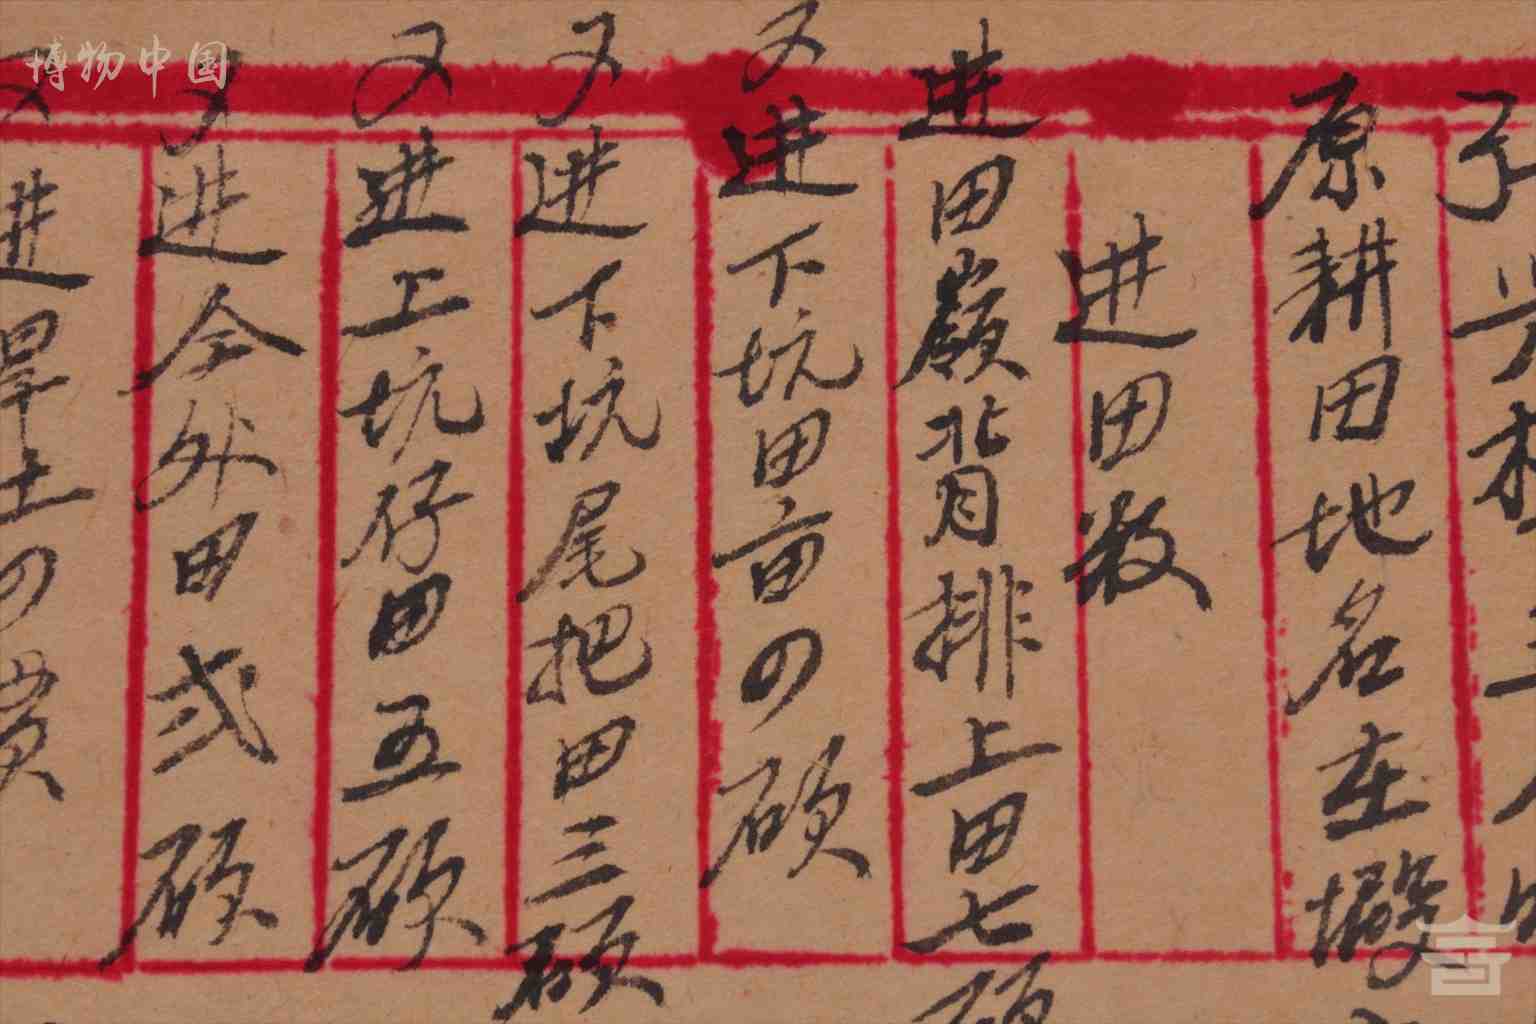 原耕田地名在
进田数
进田嶺背排上田七硕
又进下坑田亩四硕
又进下坑尾把田三硕
又进上坑仔田五硕
又进仝外田弍硕
又进旱土四
博物中国